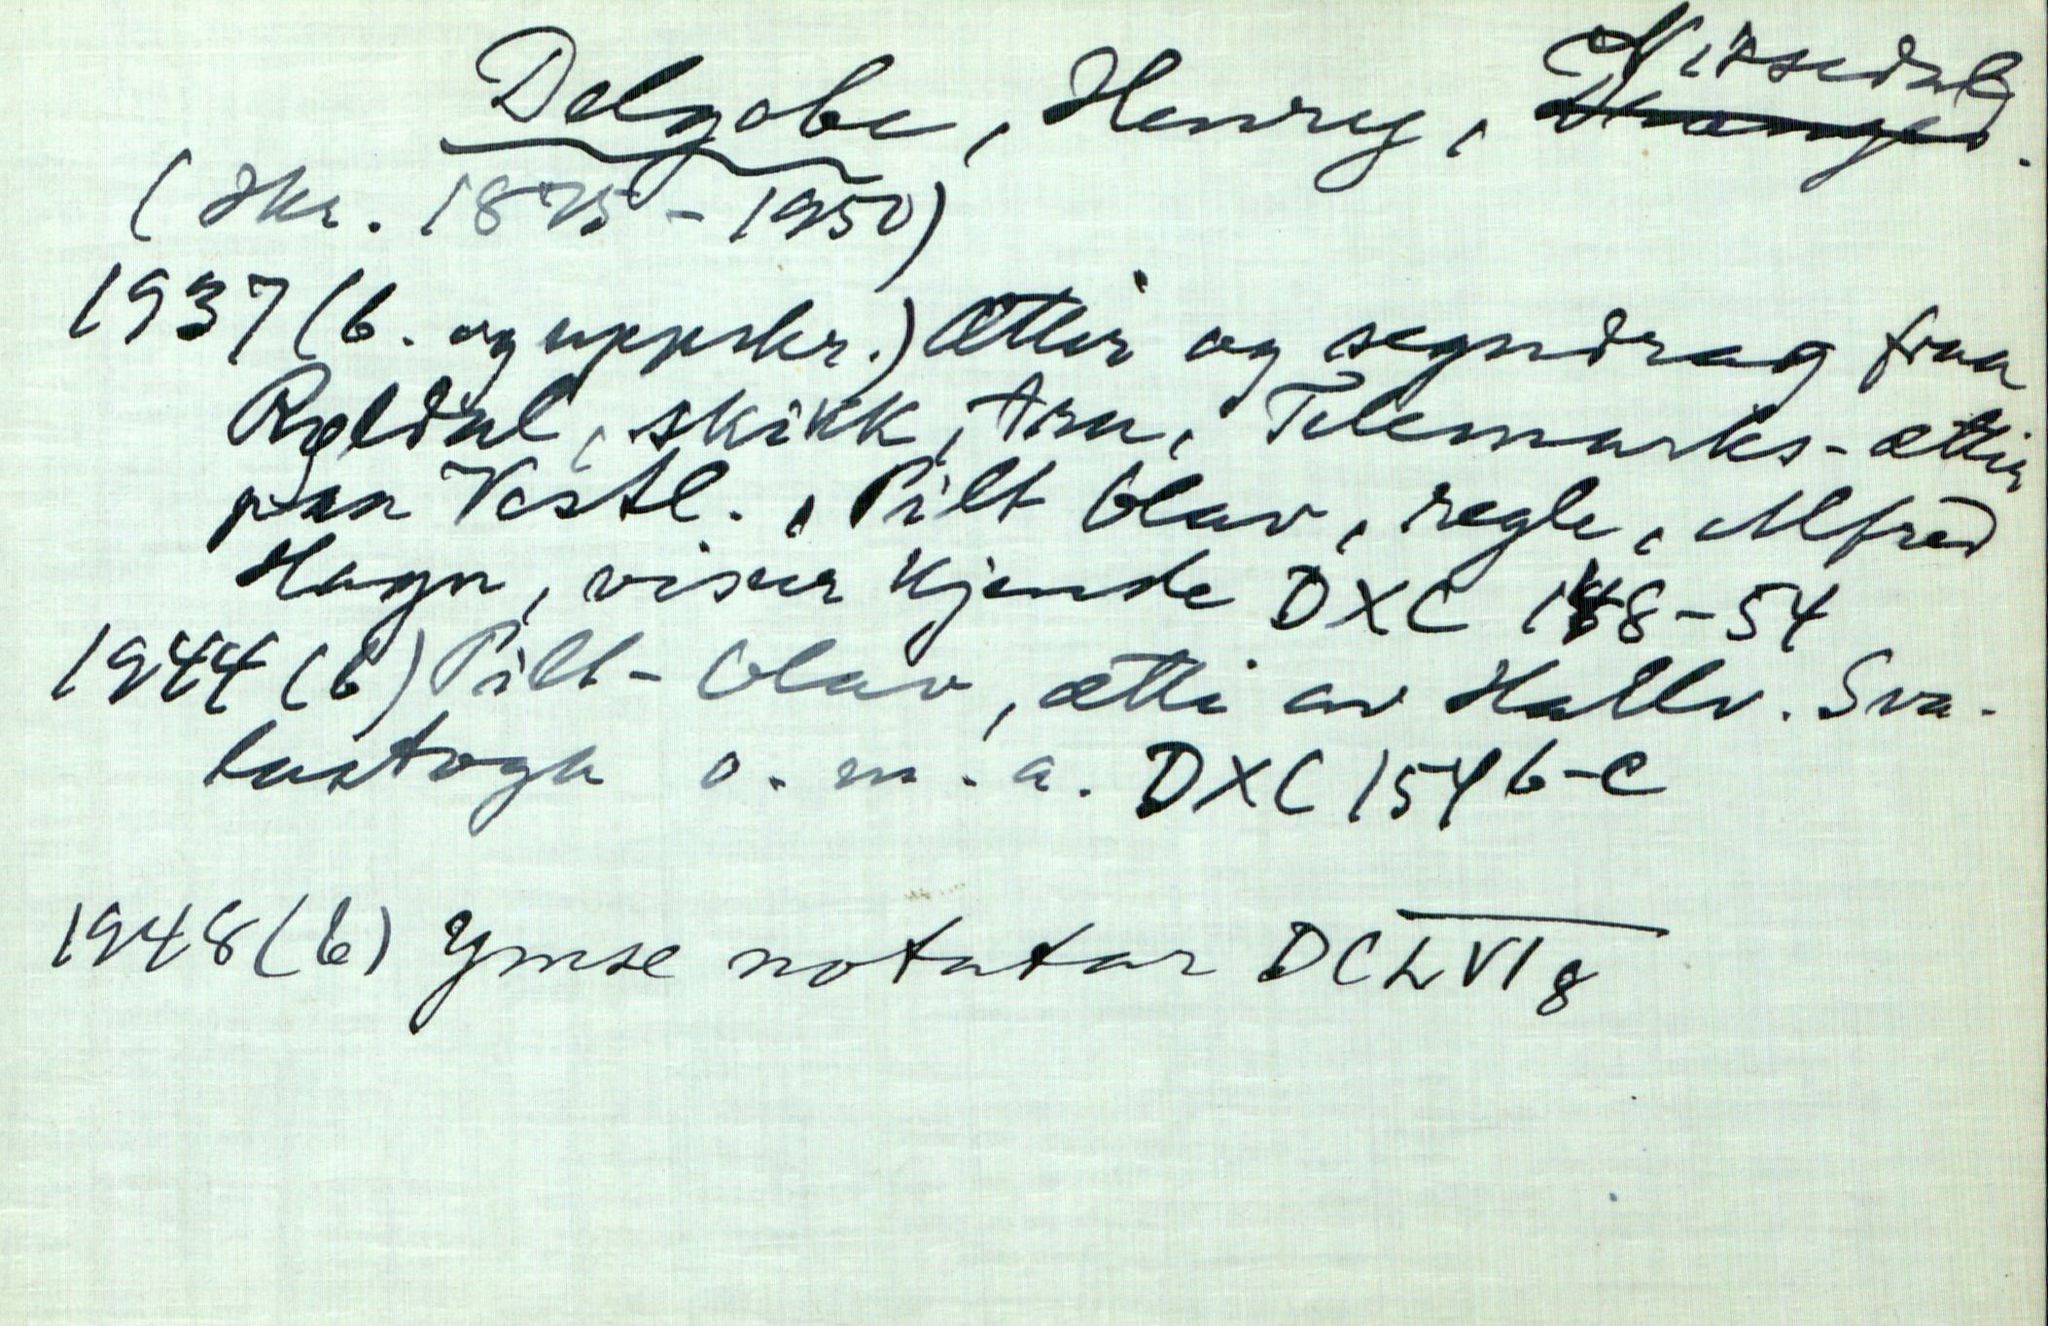 Delgobe, Henry, Nissedal.
(Skr. 1875-1950)
1937 (b. og uppskr.) Ættir og segndrag fraa
Røldal, skikk, tru, Telemarks-ættir
paa Vestl., Pilt Olav, regle, Alfred
Hagn, viser Kjende DXC 148-54
1944 (b) Pilt-Olav, ætti av Hallv. Sva-
lastoga o.m.a. DXC 154 b-c
1948 (b) Ymse notatar DCLVI g